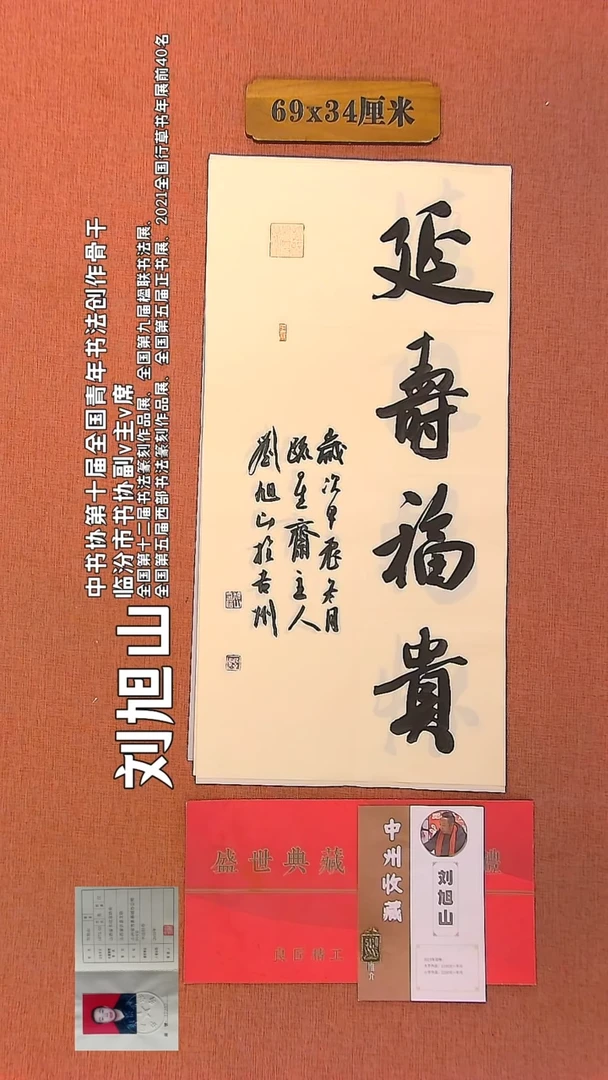 69x34厘米
延壽福貴
歲次甲辰冬月
瓯星齋主人
劉旭山於古州
刘旭山
中书协第十届全国青年书法创作骨干
临汾市书协副v主v席
全国第十二届书法篆刻作品展、全国第九届楹联书法展、
全国第五届西部书法篆刻作品展、全国第五届正书展、2021全国行草书年展前40名
盛世典藏
中州收藏
刘旭山